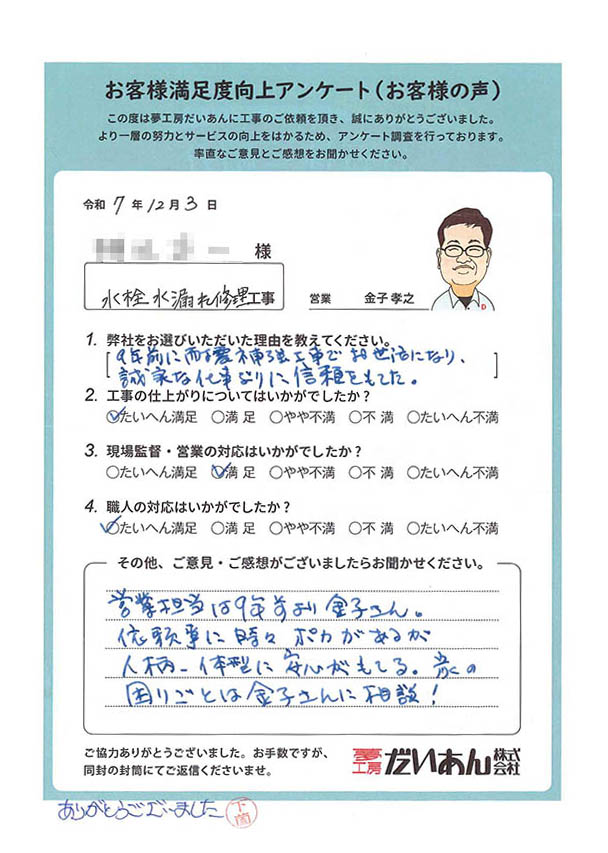 お客様満足度向上アンケート（お客様の声）
この度は夢工房だいあんに工事のご依頼を頂き、誠にありがとうございました。
より一層の努力とサービスの向上をはかるため、アンケート調査を行っております。
率直なご意見とご感想をお聞かせください。
令和 7 年 12 月 3 日
様
水栓水漏れ修理工事
営業 金子 孝之
1. 弊社をお選びいただいた理由を教えてください。
9年前に耐震補強工事でお世話になり、
誠実な仕事ぶりに信頼をもてた。
2. 工事の仕上がりについてはいかがでしたか？
○たいへん満足 ○満 足 ○やや不満 ○不 満 ○たいへん不満
3. 現場監督・営業の対応はいかがでしたか？
○たいへん満足 ○満 足 ○やや不満 ○不 満 ○たいへん不満
4. 職人の対応はいかがでしたか？
○たいへん満足 ○満 足 ○やや不満 ○不 満 ○たいへん不満
その他、ご意見・ご感想がございましたらお聞かせください。
営業担当は9年前より金子さん。
依頼事に時々ポカがあるが
人柄_体型に安心がもてる。家の
困りごとは金子さんに相談！
ご協力ありがとうございました。お手数ですが、
同封の封筒にてご返信くださいませ。
夢工房 だいあん 株式会社
ありがとうございました 下薗